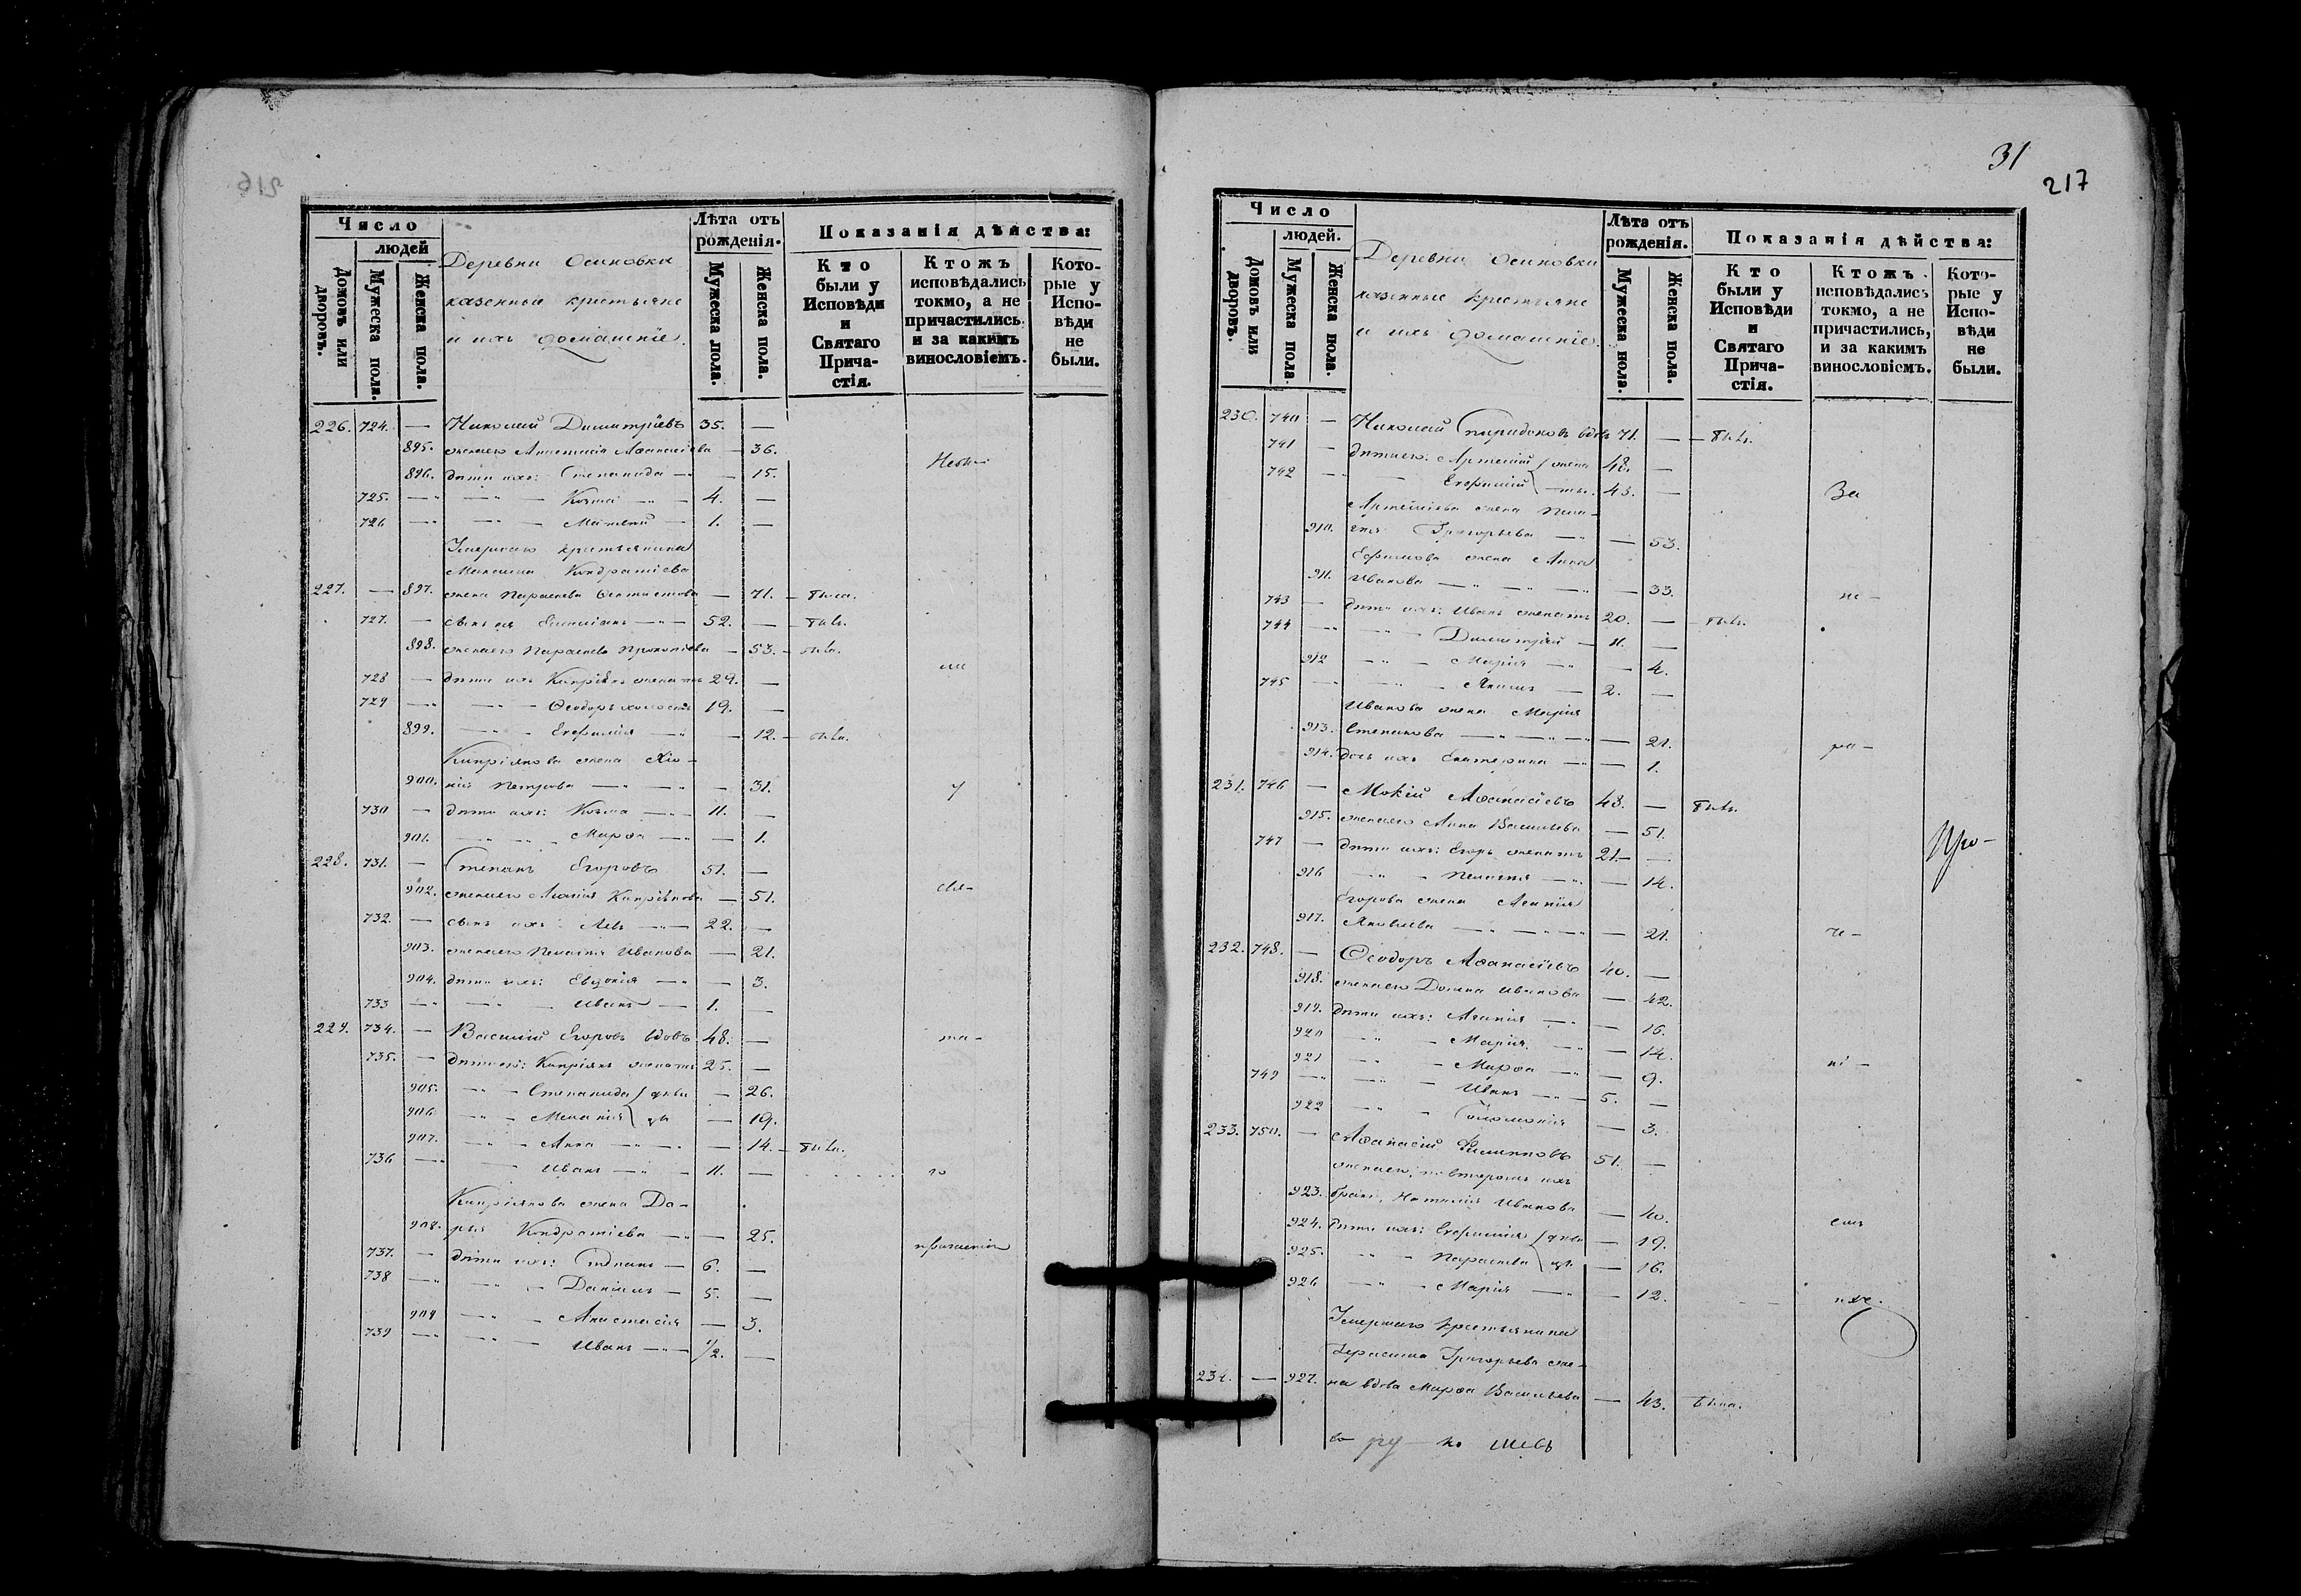 216
Число
людей
Домовъ или дворовъ.
Мужеска пола.
Женска пола.
Деревни Осиновки
казенные крестьяне
и ихъ домашніе.
Лѣта отъ рожденія.
Мужеска пола.
Женска пола.
Показанія дѣйства:
Кто были у Исповѣди и Святаго Причастія.
Ктожъ исповѣдались токмо, а не причастились, и за какимъ винословіемъ.
Которые у Исповѣди не были.
226. 724. — Николай Димитріевъ 35. —
895. жена его Анастасія Аѳанасіева — 36.
896. дѣти ихъ: Степанида — 15.
725. — Козма — 4. —
726 — Матвей — 1. —
Умершаго крестьянина
Максима Кондратіева
227. — 897. жена Параскева — 71. — была.
727. — сынъ ея Емиліанъ — 52. — былъ.
898. жена его Параскева Прокопіева — 53. — была.
728 — дѣти ихъ Кипріянъ женатъ 29. —
729 — Ѳеодоръ холостъ 19. —
899. — Евфимія — 12. — была.
Кипріянова жена Хіо-
900. нія Петрова — 31. у
730 — дѣти ихъ: Козма — 11. —
901. — Марѳа — 1.
228. 731. — Степанъ Егоровъ 51. —
902. жена его Агапія Кипріянова — 51. свя-
732. — сынъ ихъ Левъ — 22. —
903. жена его Пелагія Иванова — 21.
904. дѣти ихъ: Евдокія — 3.
733 — Иванъ — 1. —
229. 734. — Василий Егоровъ вдовъ 48. — та-
735. — дѣти его: Кипріянъ женатъ 25. —
905. — Степанида } дѣви — 26.
906. — Меланія } цы — 19.
907. — Анна — 14. — была.
736 — Иванъ — 11. — го
Кипріянова жена Да-
908. рья Кондратіева — 25. причастія
737. — дѣти ихъ: Стефанъ — 6. —
738 — Даніилъ — 5. —
909 — Анастасія — 3.
739 — Иванъ — 1/2. —
31
217
Число
людей.
Домовъ или дворовъ.
Мужеска пола.
Женска пола.
Деревни Осиновки
казенные крестьяне
и ихъ домашніе.
Лѣта отъ рожденія.
Мужеска пола.
Женска пола.
Показанія дѣйства:
Кто были у Исповѣди и Святаго Причастія.
Ктожъ исповѣдались токмо, а не причастились, и за какимъ винословіемъ.
Которые у Исповѣди не были.
230. 740 — Николай Спиридоновъ вдовъ 71. — былъ.
741 — дѣти его: Артемій } жена 48. —
742 — Евфимій } ты. 43. — За
Артеміева жена Пела-
910. гея Григорьева — 53.
Ефимова жена Анна
911. Иванова — 33. не-
743 — дѣти ихъ: Иванъ женатъ 20. — былъ.
744 — Димитрій — 11. —
912 — Марія — 4.
745 — Якимъ — 2. —
Иванова жена Марія
913. Степанова — 21. ра-
914. дочь ихъ Екатерина — 1.
231. 746 — Мокій Аѳанасіевъ 48. — былъ.
915. жена его Анна Васильева — 51. Про-
747 — дѣти ихъ: Егоръ женатъ 21. —
916 — Пелагея — 14.
Егорова жена Агапія
917. Яковлева — 21.
232. 748. — Ѳеодоръ Аѳанасіевъ 40. —
918. жена его Домна Иванова — 42.
919. дѣти ихъ: Агапія — 16.
920 — Марія — 14.
921 — Марѳа — 9. ні-
749 — Иванъ — 5. —
922 — Соломонія — 3.
233. 750. — Аѳанасій Филипповъ 51. —
жена его, по второмъ ихъ
923. бракѣ, Наталія Иванова — 40. емъ
924. дѣти ихъ: Евфимія } дѣви — 19.
925. — Параскева } цы — 16.
926 — Марія — 12.
Умершаго крестьянина
Герасима Григорьева же-
234. — 927. на вдова Марѳа Васильева — 43. была.